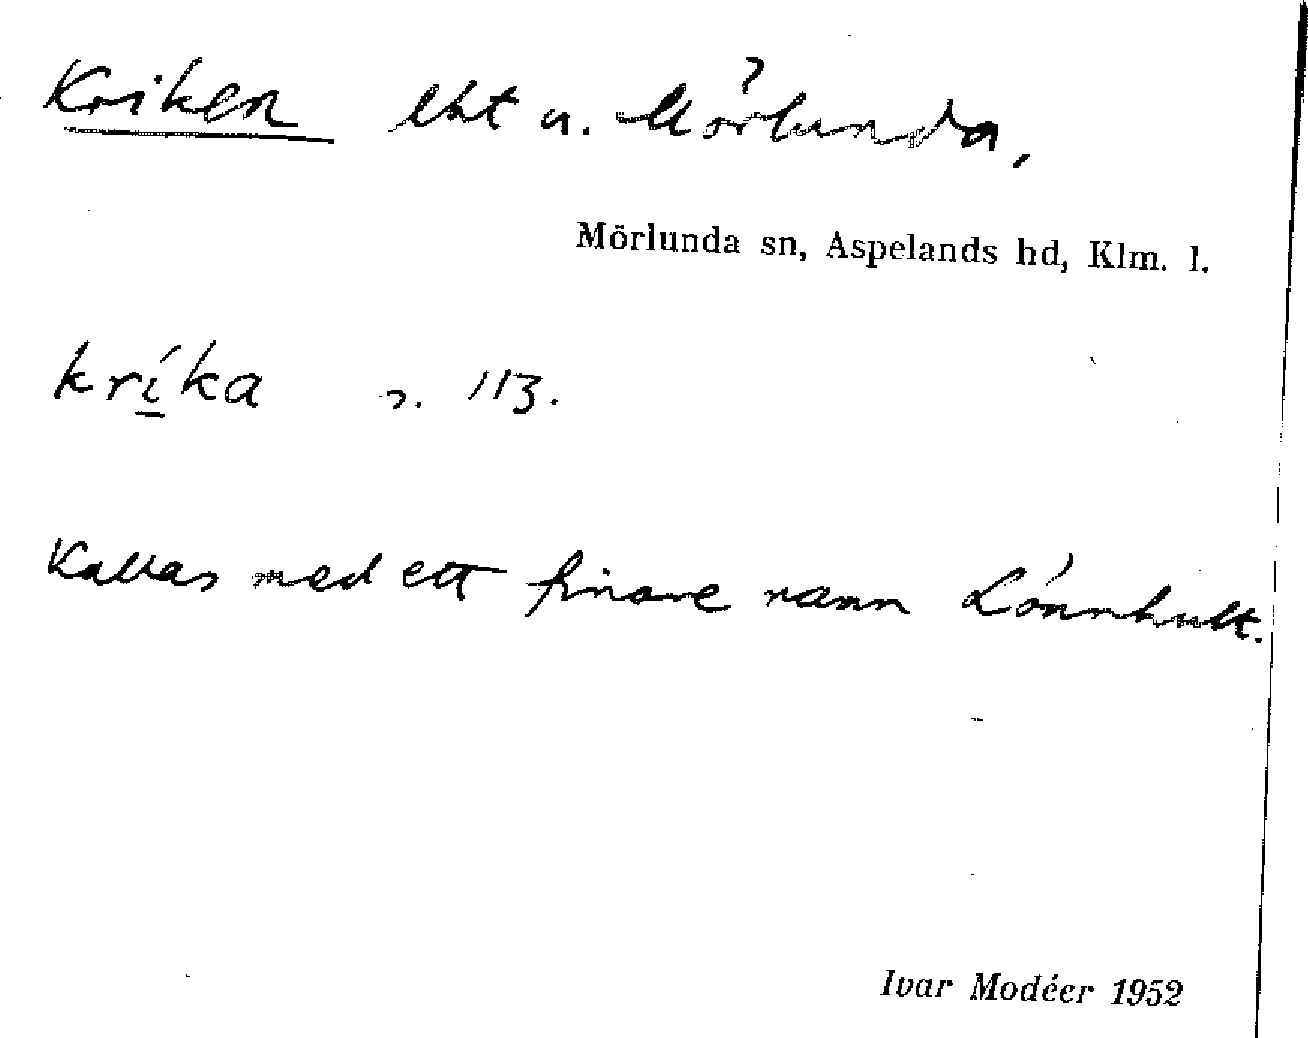 Kriken lht u. Mörlunda,
Mörlunda sn, Aspelands hd, Klm. l.
kríka s. 113.
Kallas med ett finare namn Lönnhult.
Ivar Modéer 1952